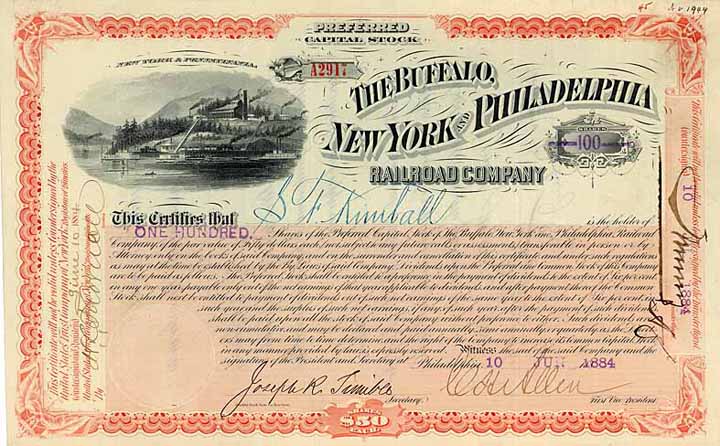 PREFERRED
CAPITAL STOCK
NEW YORK & PENNSYLVANIA.
A2917
THE BUFFALO,
NEW YORK AND PHILADELPHIA
RAILROAD COMPANY
SHARES
100
S F Kimball
This Certifies that
is the holder of
ONE HUNDRED
Shares of the Preferred Capital Stock of the Buffalo, New York and Philadelphia, Railroad
Company, of the par value of Fifty dollars each, not subject to any future calls or assessments, transferable in person or by
Attorney only on the books of said Company, and on the surrender and cancellation of this certificate, and under such regulations
as may at the time be established by the By Laws of said Company. Dividends upon the Preferred and Common Stock of this Company
are to be paid as follows. The Preferred Stock shall be entitled to a preference in the payment of dividends to the extent of Six per cent.
in any one year, payable only out of the net earnings of that year applicable to dividends, and after payment thereof the Common
Stock shall next be entitled to payment of dividends out of such net earnings of the same year to the extent of Six per cent. in
such year and the surplus of such net earnings, if any, of such year, after the payment of such dividends
shall be paid upon all the stock of said Company without preference to either. Such dividends are
non-cumulative, and may be declared and paid annually, semi-annually or quarterly, as the Direct-
ors may from time to time determine, and the right of the Company to increase its common Capital Stock
in any manner provided by law is expressly reserved.
Witness the seal of the said Company and the
signatures of the President and Secretary at Philadelphia
10 JUN 1884
Joseph R. Trimble
Secretary.
First Vice President.
SHARES
$50
EACH
This Certificate will not be valid unless countersigned by the
United States Trust Company of New York, Transfer Agent
Countersigned
June 10 1884
By
10
1884